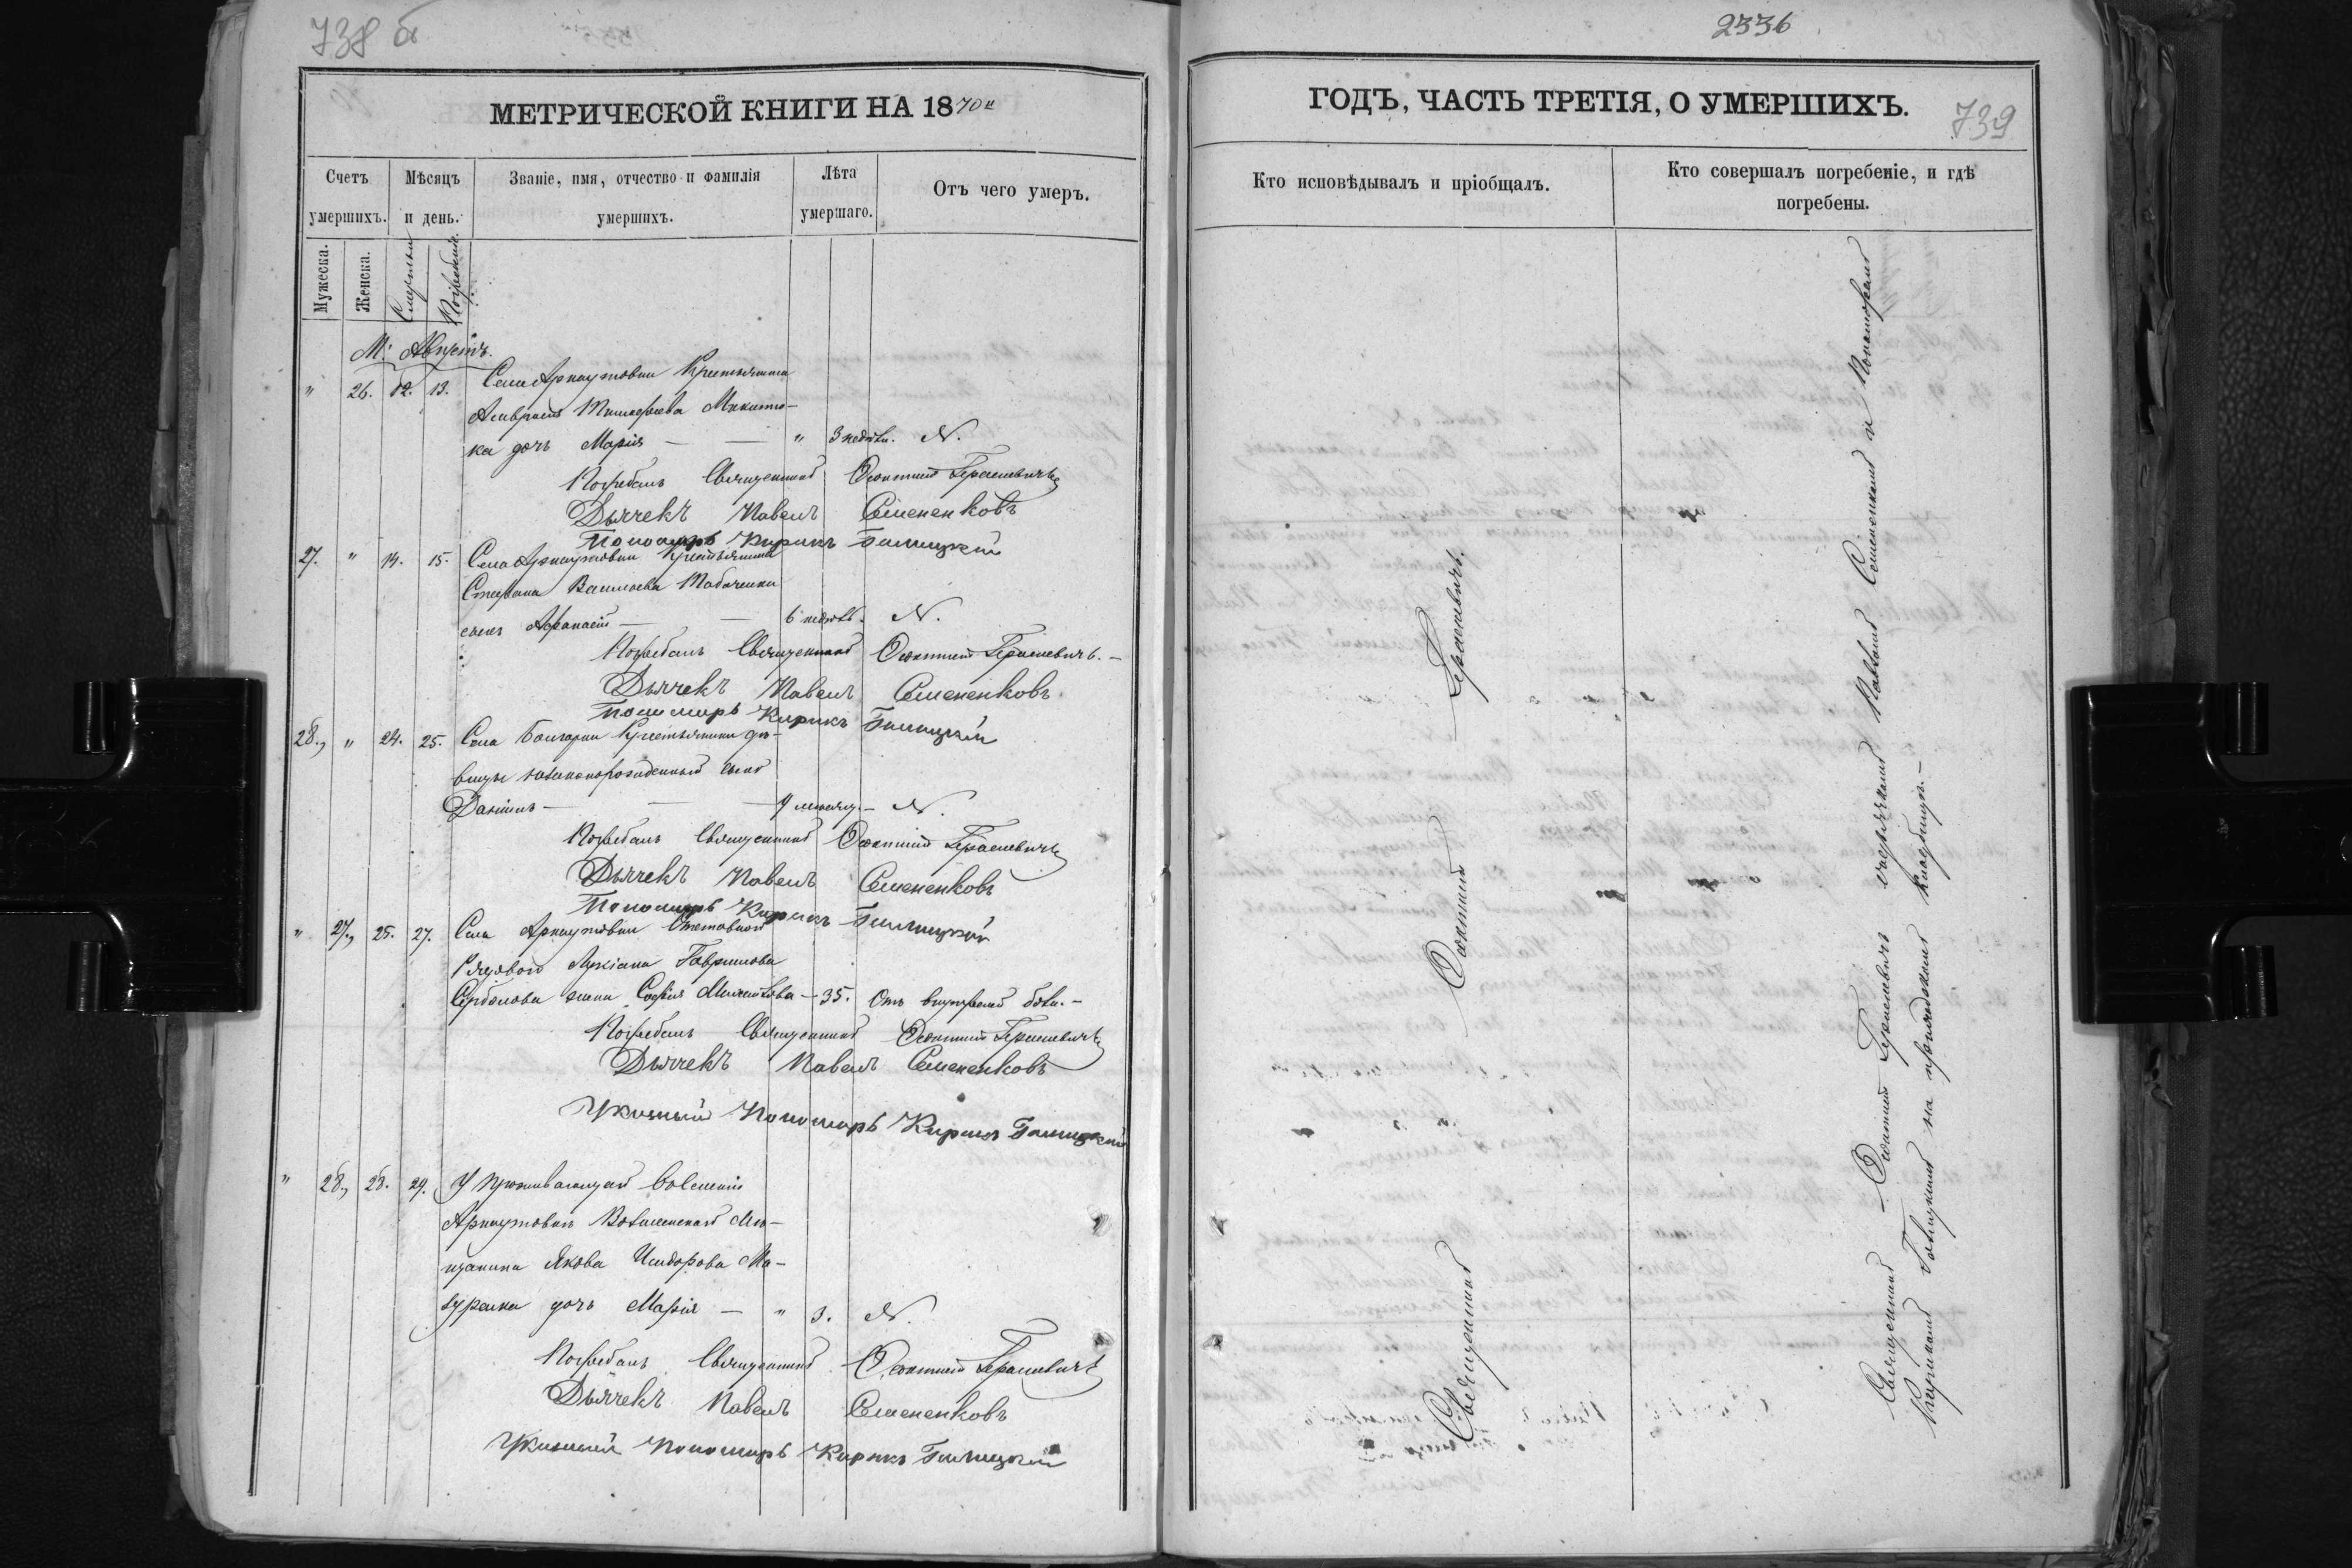 738 б
МЕТРИЧЕСКОЙ КНИГИ НА 1870й
Счетъ умершихъ.
Мѣсяцъ и день.
Званіе, имя, отчество и фамилія умершихъ.
Лѣта умершаго.
Отъ чего умеръ.
Мужеска.
Женска.
Смерти
Погребенія.
М. Августъ.
" 26. 12. 13. Села Арнаутовки Крестьянина
Тимофеева Микито-
ка дочь Марія — — " 3 недѣли. N.
Погребалъ Священникъ Ѳеоктистъ Герасимовичъ
Дьячекъ Павелъ Семененковъ
Пономарь Кирикъ Галицкій
27. " 14. 15. Села Арнаутовки Крестьянина
Стефана Василіева Табаченка
сынъ Афанасій — — 6 недѣль. N.
Погребалъ Священникъ Ѳеоктистъ Герасимовичъ. —
Дьячекъ Павелъ Семененковъ
Пономарь Кирикъ Галицкій
28., " 24. 25. Села Болгарки Крестьянки дѣ-
вицы незаконорожденный сынъ
Даніилъ — — — N.
Погребалъ Священникъ Ѳеоктистъ Герасимовичъ
Дьячекъ Павелъ Семененковъ
Пономарь Кирикъ Галицкій
" 27., 25. 27. Села Арнаутовки Отставнаго
Рядоваго Лукіана Гаврилова
жена Софія — 35. Отъ внутренней боли. —
Погребалъ Священникъ Ѳеоктистъ Герасимовичъ
Дьячекъ Павелъ Семененковъ
Указный Пономарь Кирикъ Галицкій
" 28., 28. 29. У проживающаго въ селеніи
Арнаутовкѣ Мѣ-
щанина Якова Исидорова Ма-
зуренка дочь Марія — " 3. N.
Погребалъ Священникъ Ѳеоктистъ Герасимовичъ
Дьячекъ Павелъ Семененковъ
Указный Пономарь Кирикъ Галицкій
2336
ГОДЪ, ЧАСТЬ ТРЕТІЯ, О УМЕРШИХЪ.
739
Кто исповѣдывалъ и пріобщалъ.
Кто совершалъ погребеніе, и гдѣ погребены.
Священникъ Ѳеоктистъ Герасимовичъ.
Священникъ — Ѳеоктистъ Герасимовичъ съ дьячкомъ Павломъ Семененкомъ и Пономаремъ
Кирикомъ Галицкимъ на приходскомъ кладбищѣ. —